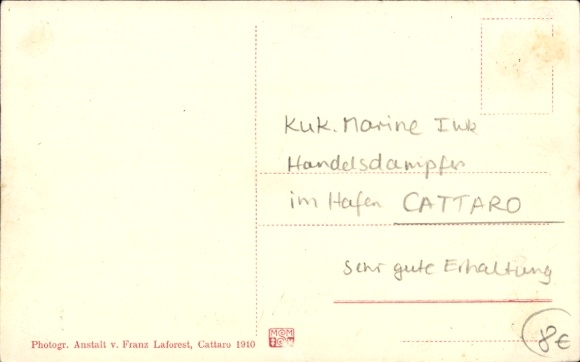 KuK. Marine
Handelsdampfer
im Hafen CATTARO
Sehr gute Erhaltung
8€
Photogr. Anstalt v. Franz Laforest, Cattaro 1910